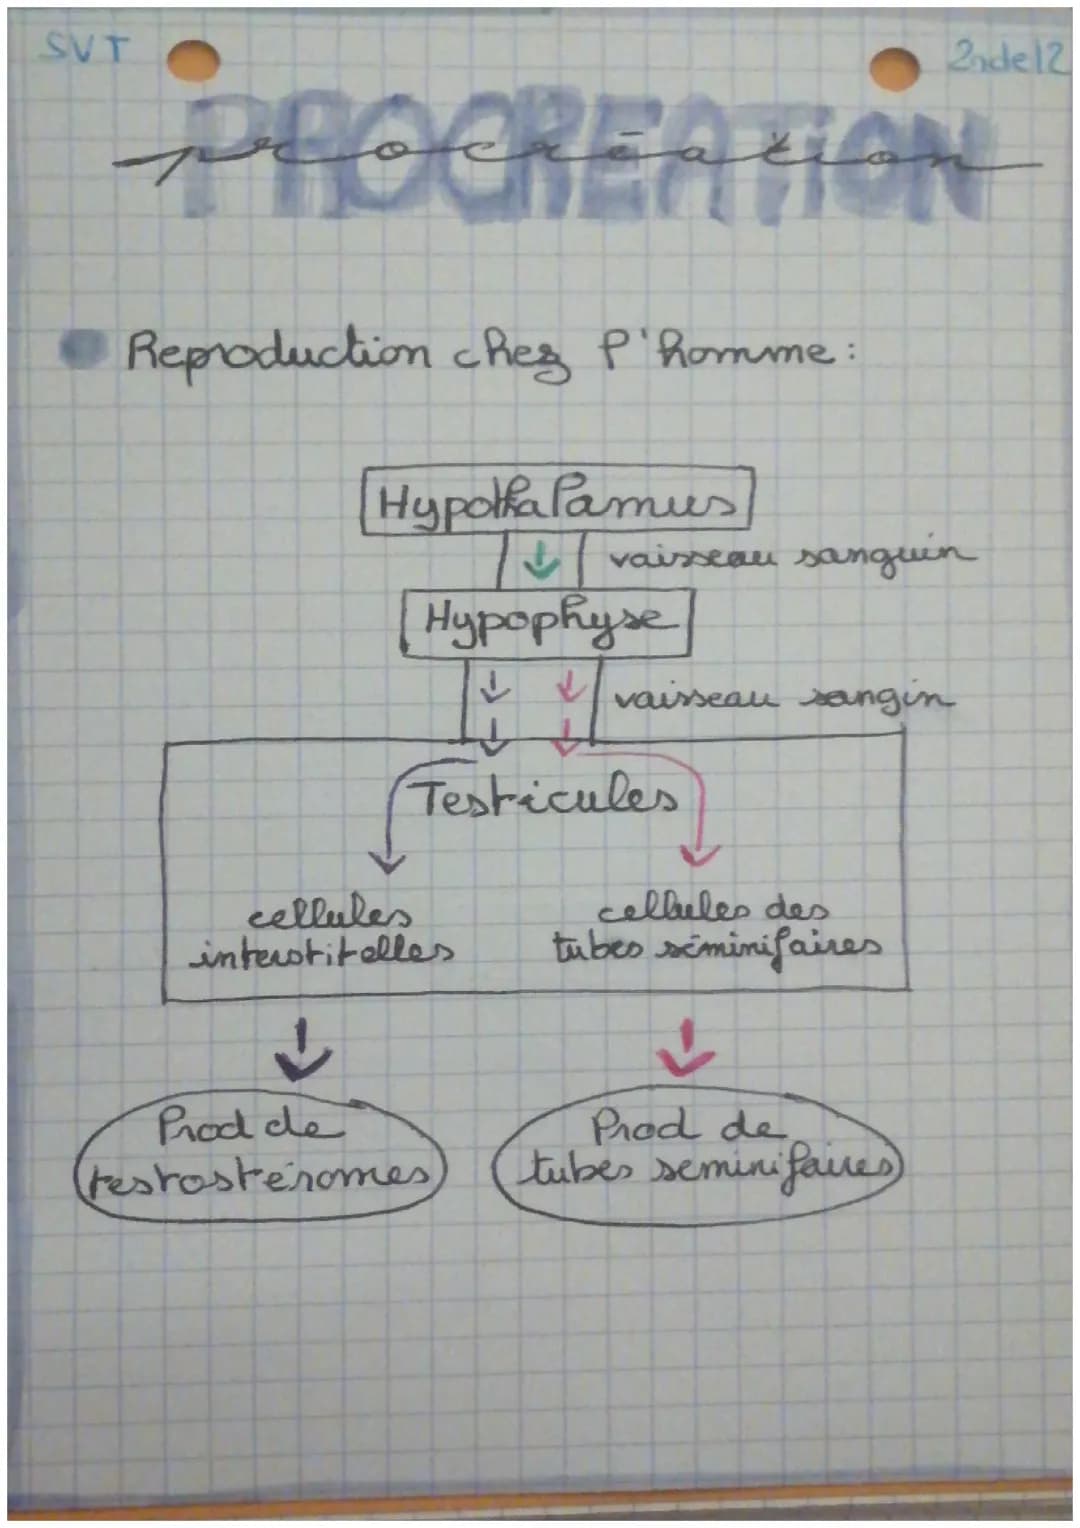 SVT
2nde12
PROCREATION
procréation
Reproduction chez l'homme :
Hypothalamus
vaisseau sanguin
Hypophyse
vaisseau sangin
Testicules
cellules
interstitelles
cellules des
tubes séminifaires
Prod de
testostéromes
Prod de
tubes seminifaires